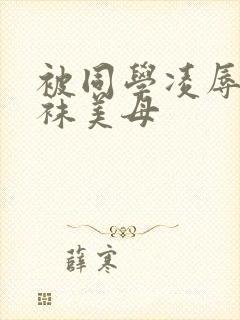 被同學凌辱
袜美母
薛寒